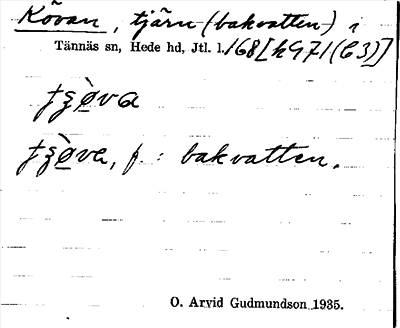 Kövan, tjärn (bakvatten) i
Tännäs sn, Hede hd, Jtl. l. 168[k971(C3)]
tʂø̀va
tʂø̀va, f.: bakvatten.
O. Arvid Gudmundson 1935.